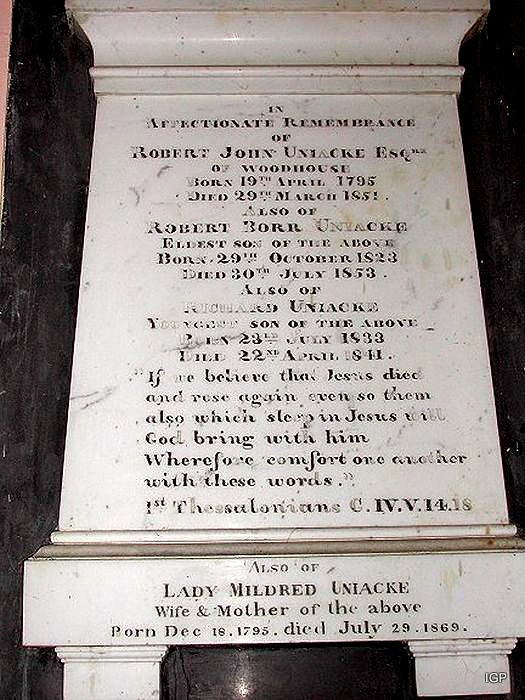 IN
AFFECTIONATE REMEMBRANCE
OF
ROBERT JOHN UNIACKE ESQRE
OF WOODHOUSE
BORN 19TH APRIL 1795
DIED 29TH MARCH 1851.
ALSO OF
ROBERT BORR UNIACKE
ELDEST SON OF THE ABOVE
BORN 29TH OCTOBER 1823
DIED 30TH JULY 1853.
ALSO OF
RICHARD UNIACKE
YOUNGEST SON OF THE ABOVE
BORN 23RD JULY 1833
DIED 22ND APRIL 1841.
"If we believe that Jesus died
and rose again even so them
also which sleep in Jesus will
God bring with him
Wherefore comfort one another
with these words."
1st Thessalonians C.IV.V.14.18
ALSO OF
LADY MILDRED UNIACKE
Wife & Mother of the above
Born Dec 18.1795. died July 29.1869.
IGP